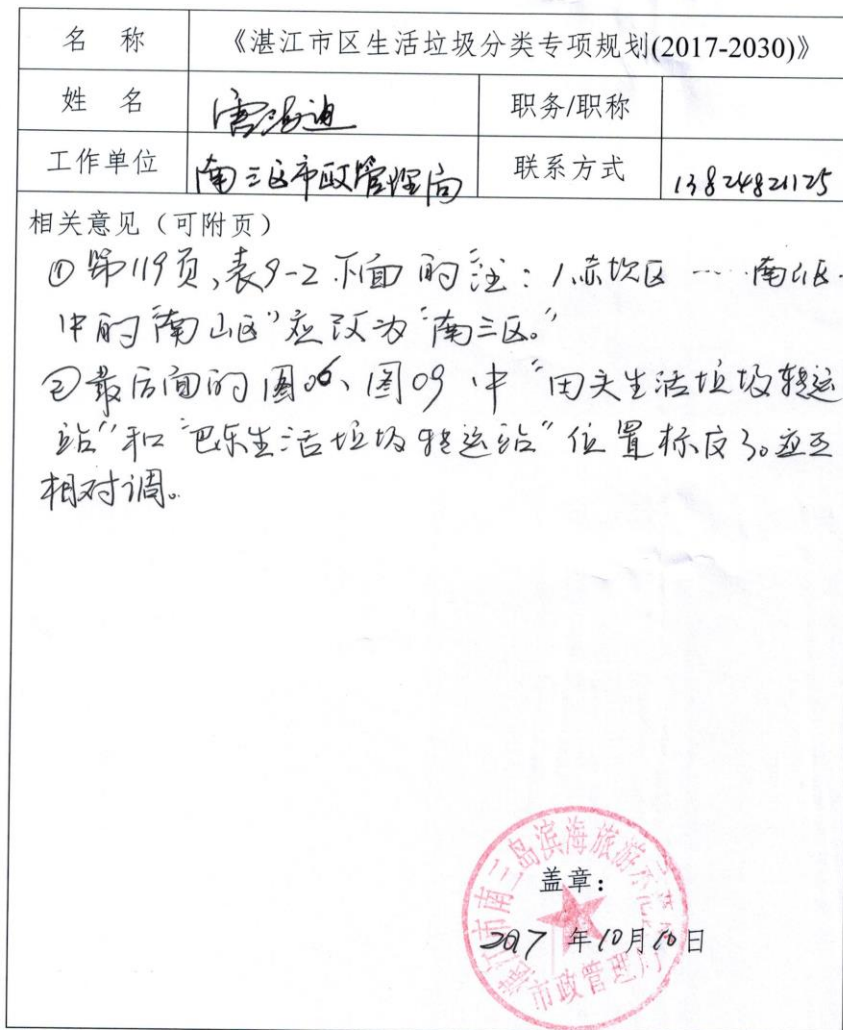 名 称 《湛江市区生活垃圾分类专项规划(2017-2030)》
姓 名 职务/职称
工作单位 南三区市政管理局 联系方式 13824821125
相关意见（可附页）
①第119页,表9-2下面的注：1.赤坎区 … 南山区
中的"南山区"应改为"南三区。"
②最后面的图06、图09中"田头生活垃圾转运
站"和"巴东生活垃圾转运站"位置标反了。应互
相对调。
湛江市南三岛滨海旅游示范区
盖章：
2017 年10月10日
市政管理局